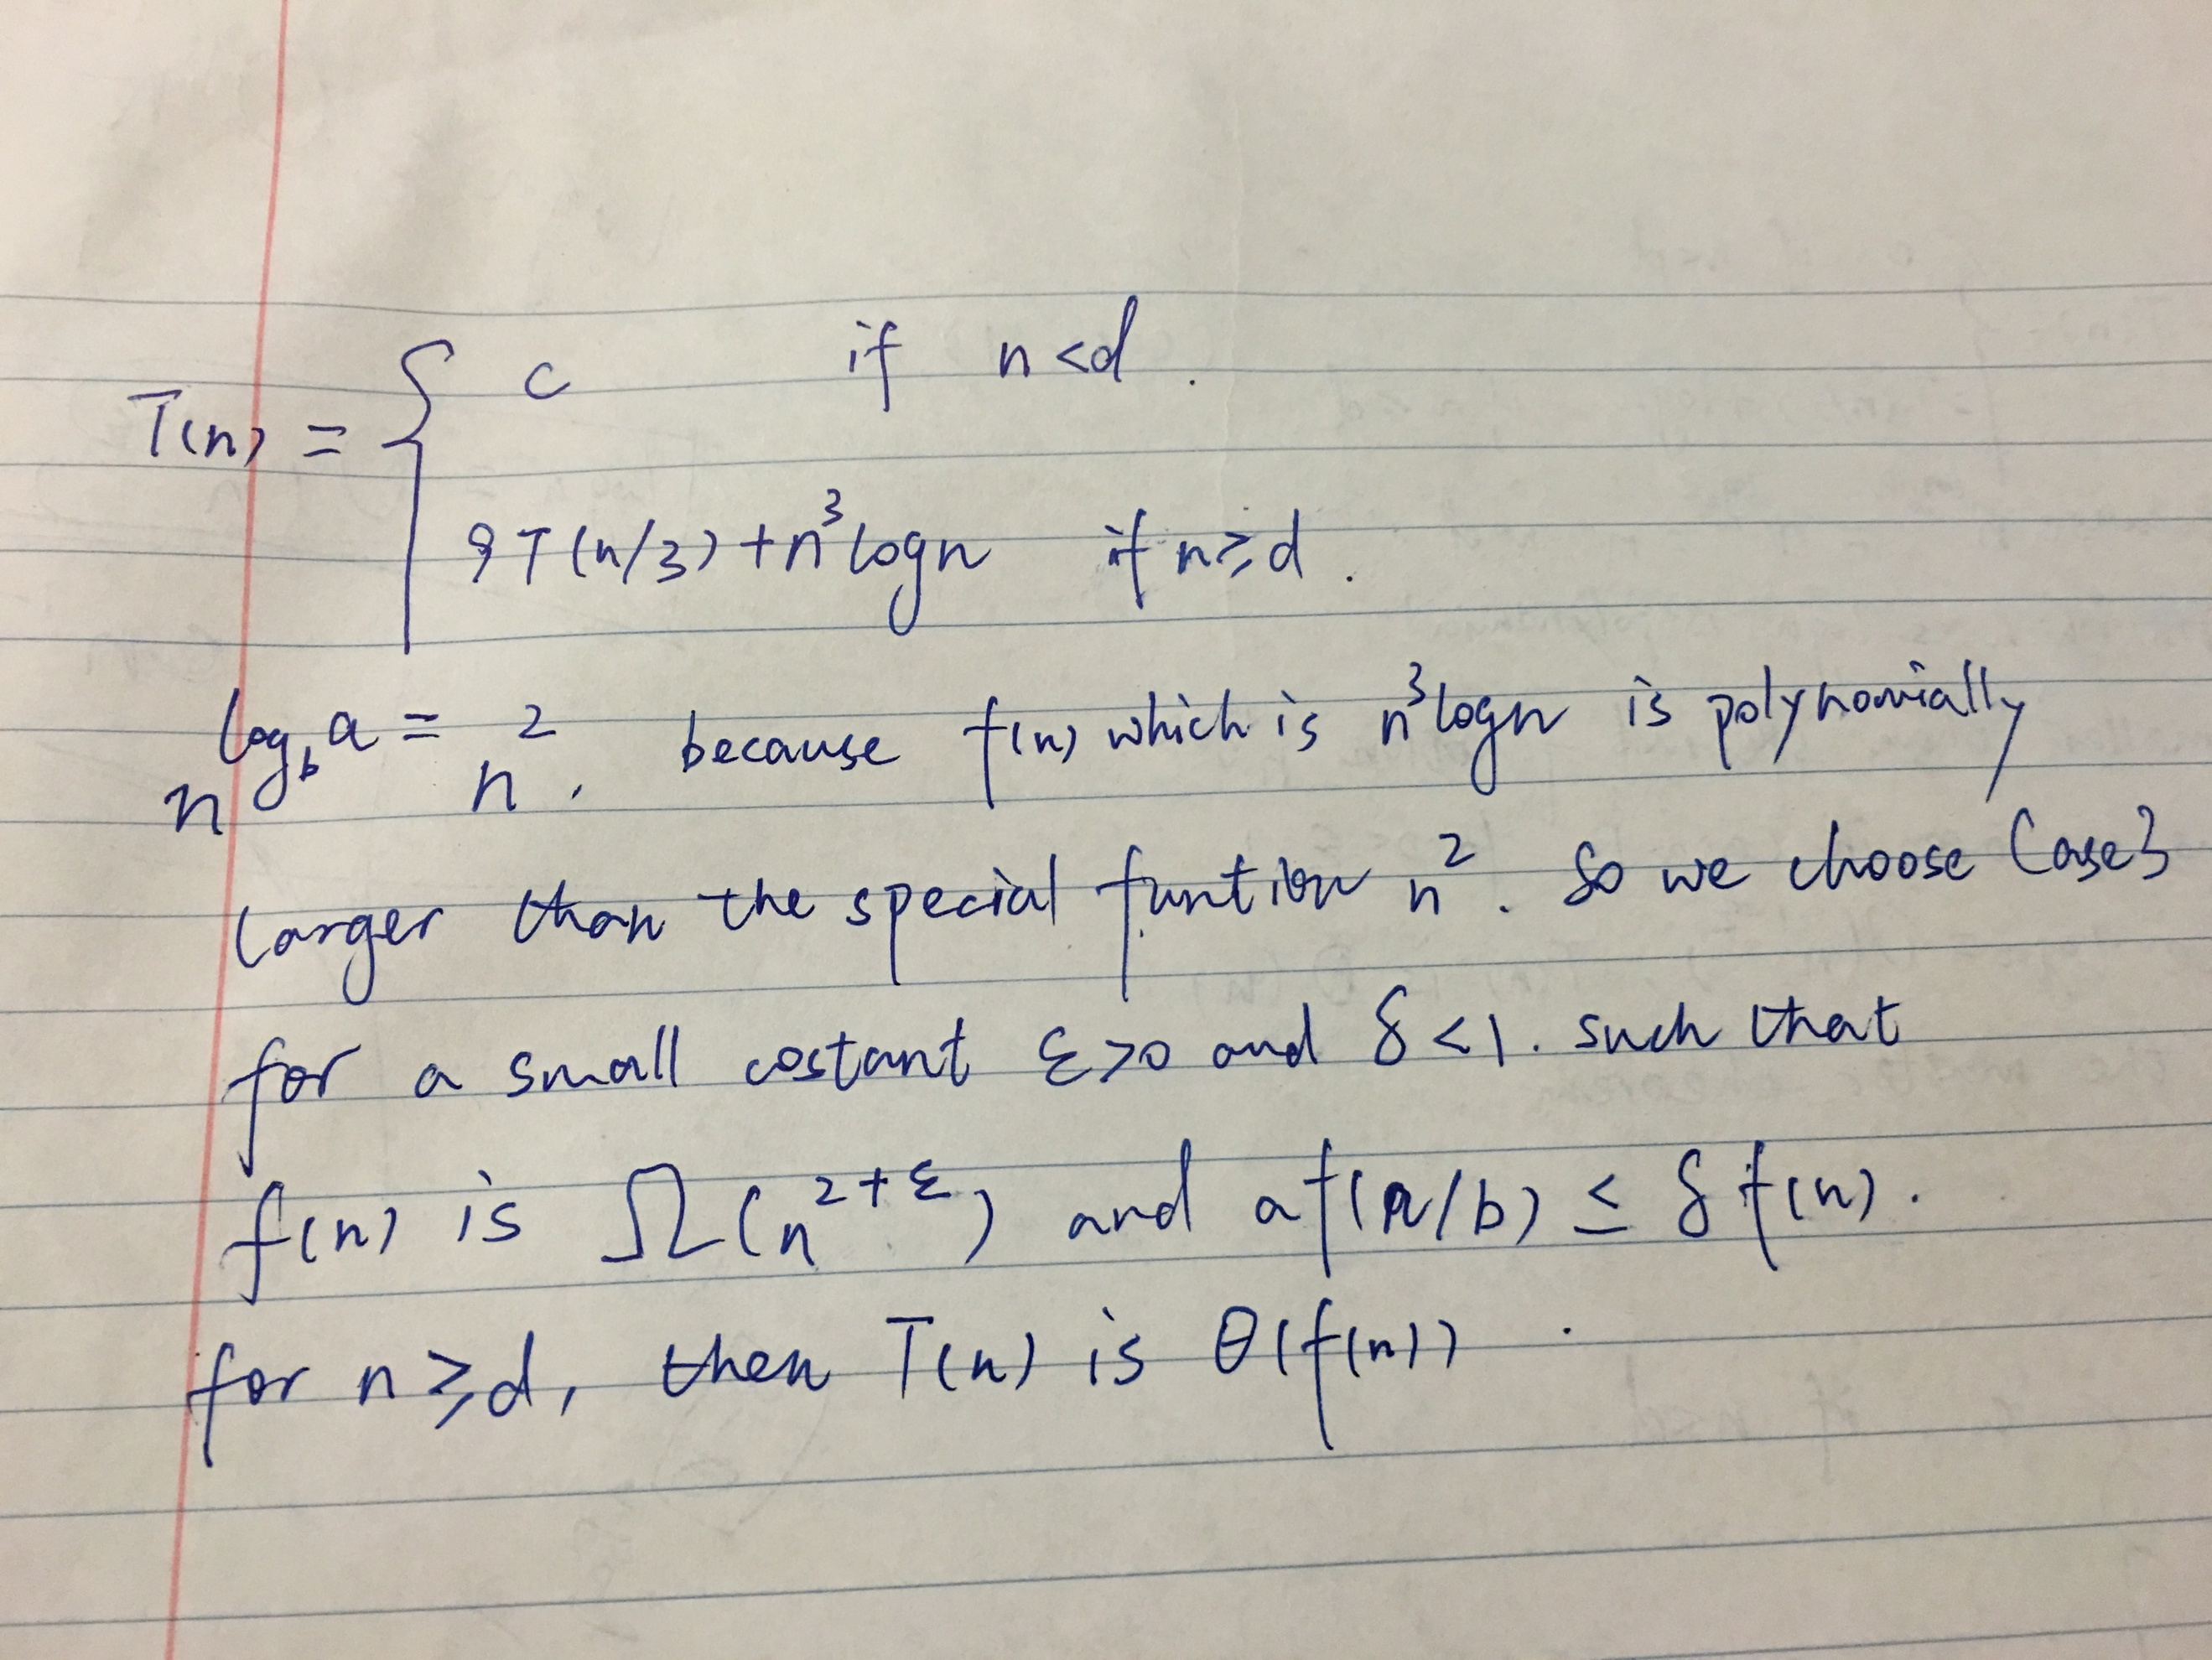 T(n) = { c if n<d.
9T(n/3)+n³logn if n≥d.
n^log_b a = n². because f(n) which is n³logn is polynomially
larger than the special funtion n². So we choose Case3
for a small costant ε>0 and δ<1. such that
f(n) is Ω(n^2+ε) and af(n/b) ≤ δf(n).
for n≥d, then T(n) is θ(f(n)).